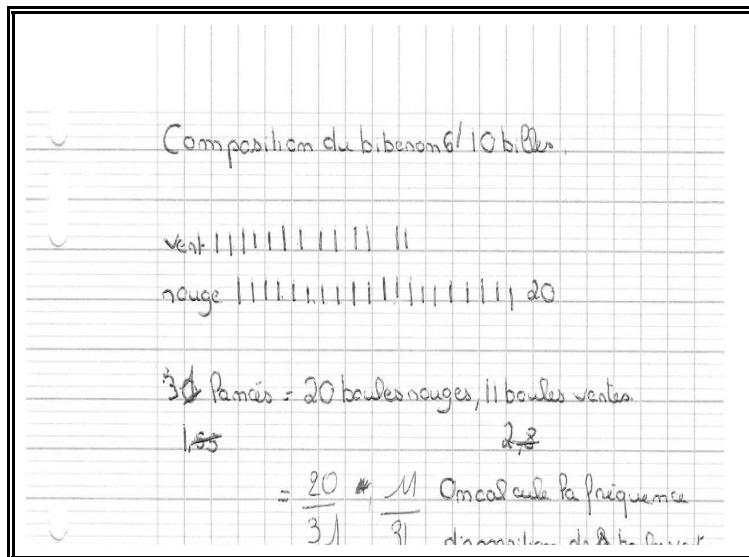 Composition du biberon 6/ 10 billes.
vert ||||||||||| ||
rouge |||||||||||||||||||| 20
31 lancés = 20 boules rouges, 11 boules vertes.
1,55 2,8
= 20/31 , 11/31 On calcule la fréquence
d'apparition de